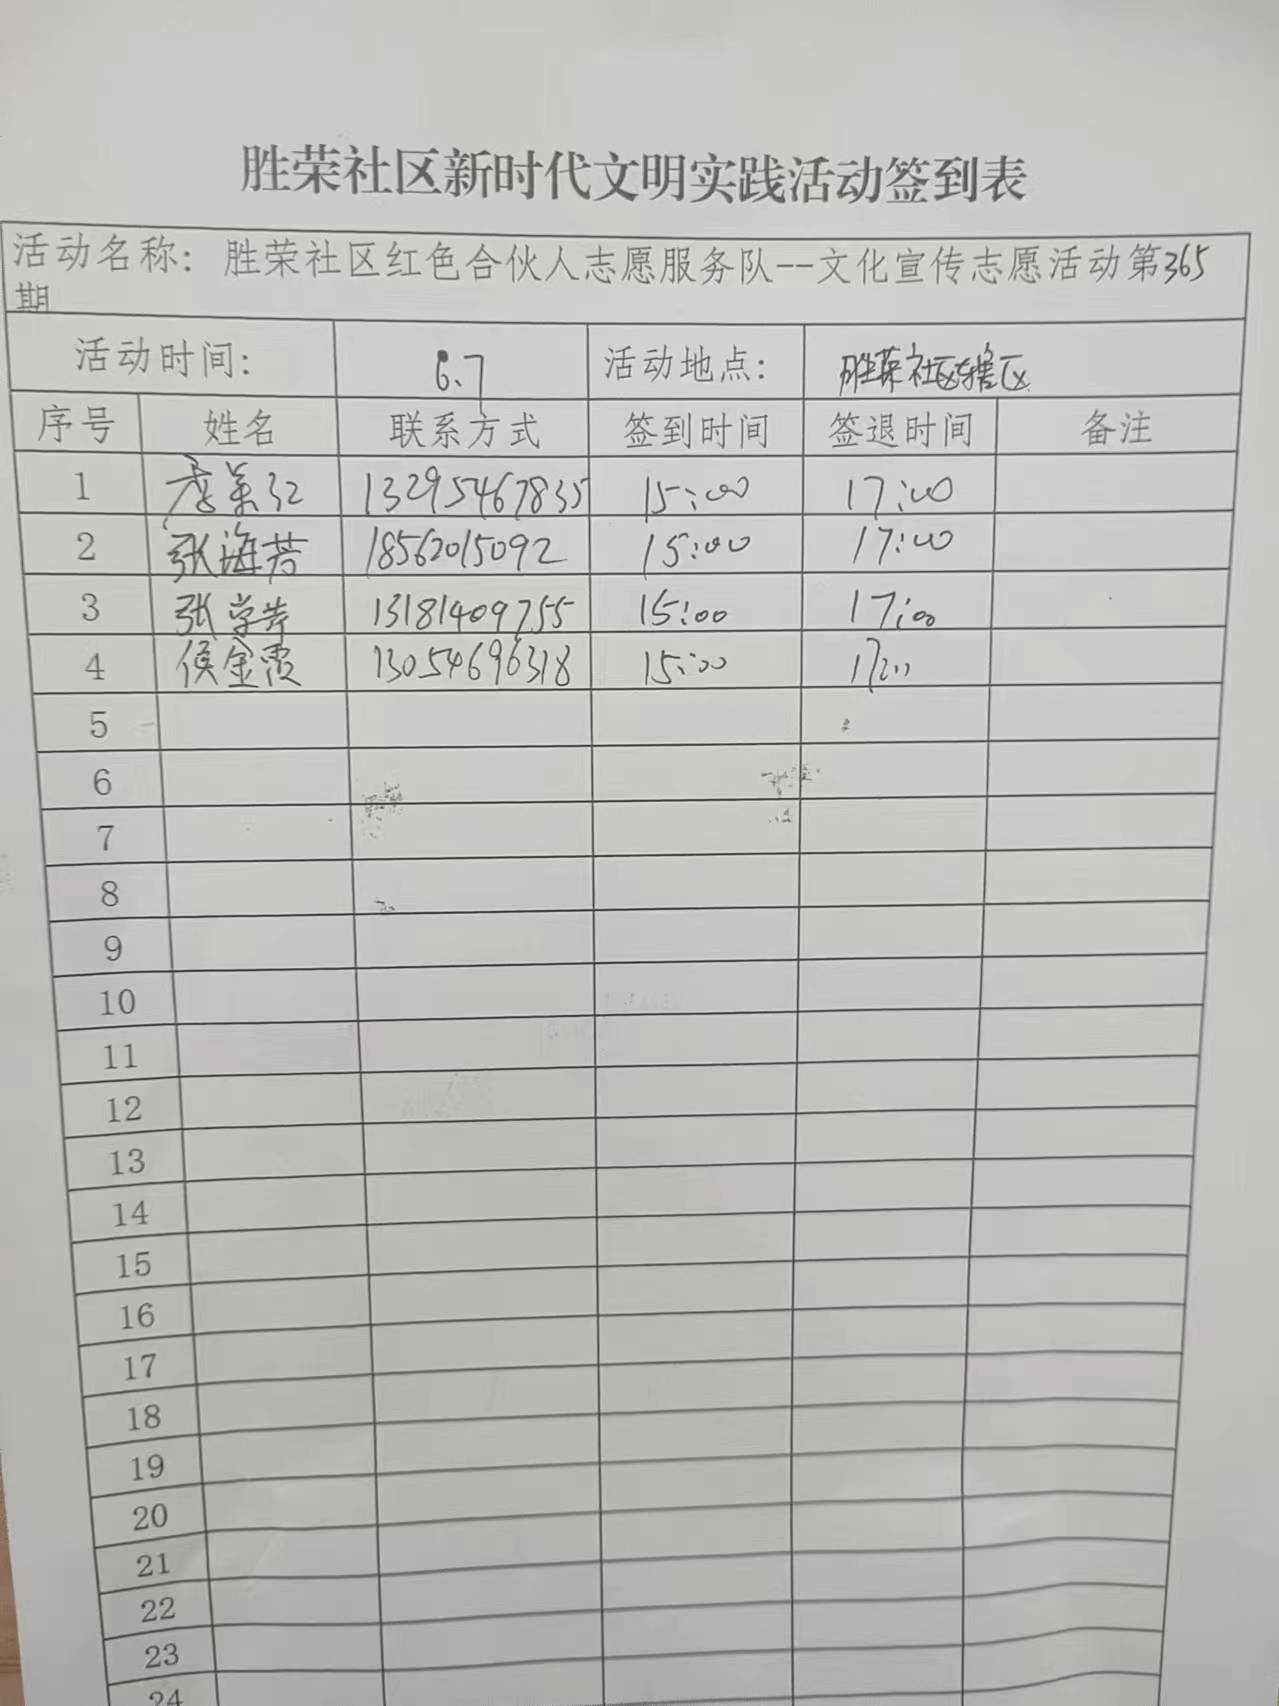 胜荣社区新时代文明实践活动签到表
活动名称：胜荣社区红色合伙人志愿服务队--文化宣传志愿活动第365
期
活动时间： 6.7 活动地点： 胜荣社区辖区
序号 姓名 联系方式 签到时间 签退时间 备注
1 13295467835 15:00 17:00
2 张海芳 18562015092 15:00 17:00
3 张学苹 13181409755 15:00 17:00
4 侯金霞 13054696318 15:00
5
6
7
8
9
10
11
12
13
14
15
16
17
18
19
20
21
22
23
24